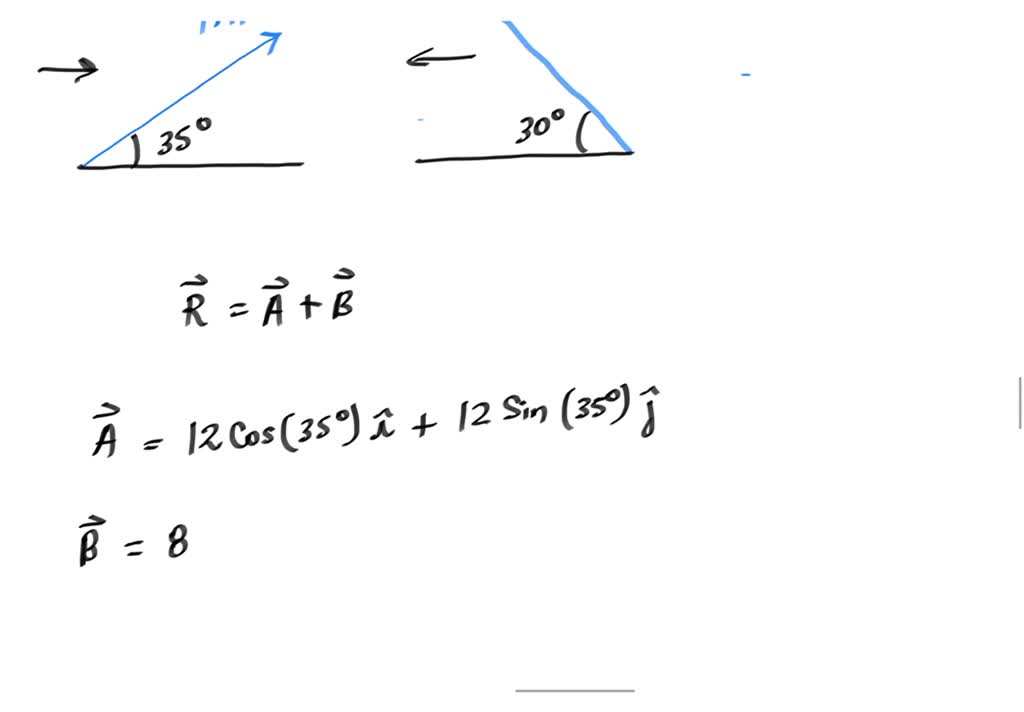 35° 30°
R⃗ = A⃗ + B⃗
A⃗ = 12 Cos(35°) î + 12 Sin (35°) ĵ
B⃗ = 8